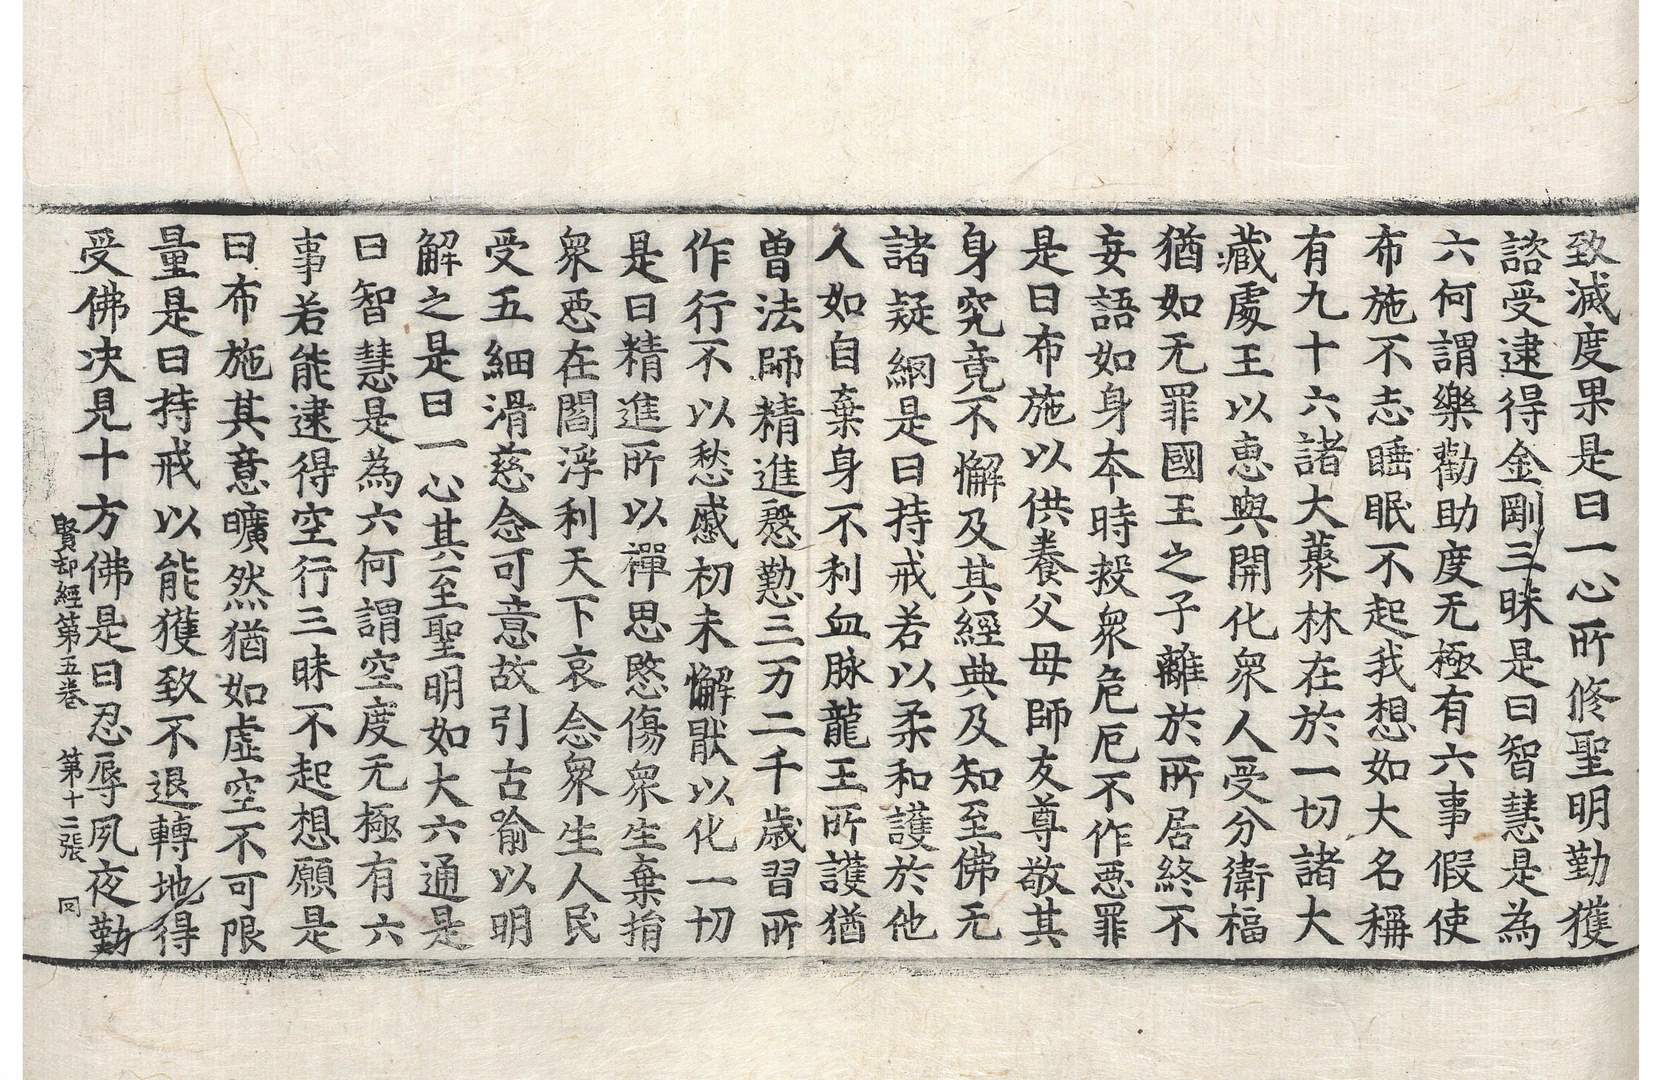 致滅度果是曰一心所修聖明勤獲
諮受逮得金剛三昧是曰智慧是為
六何謂樂勸助度无極有六事假使
布施不志睡眠不起我想如大名稱
有九十六諸大藂林在於一切諸大
藏處王以惠與開化衆人受分衛福
猶如无罪國王之子離於所居終不
妄語如身本時救衆危厄不作惡罪
是曰布施以供養父母師友尊敬其
身究竟不懈及其經典及知至佛无
諸疑網是曰持戒若以柔和護於他
人如自棄身不利血脉龍王所護猶
曽法師精進慇懃三万二千歳習所
作行不以愁慼初未懈猒以化一切
是曰精進所以禪思愍傷衆生棄捐
衆惡在閻浮利天下哀念衆生人民
受五細滑慈念可意故引古喻以明
解之是曰一心其至聖明如大六通是
曰智慧是為六何謂空度无極有六
事若能逮得空行三昧不起想願是
曰布施其意曠然猶如虛空不可限
量是曰持戒以能獲致不退轉地得
受佛决見十方佛是曰忍辱夙夜勤
賢劫經第五卷 第十二張 冈